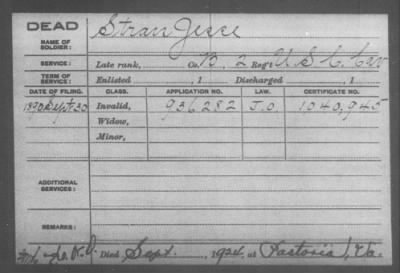 DEAD
Stran Jesse
NAME OF SOLDIER:
SERVICE: Late rank, Co. B, 2 Reg't U S C Cav
TERM OF SERVICE: Enlisted , 1 Discharged , 1
DATE OF FILING. CLASS. APPLICATION NO. LAW. CERTIFICATE NO.
1890 Sept. 30 Invalid, 936282 J.O. 1,040,945
Widow,
Minor,
ADDITIONAL SERVICES:
REMARKS:
Died Sept. , 1924, at Pastoria, Va.